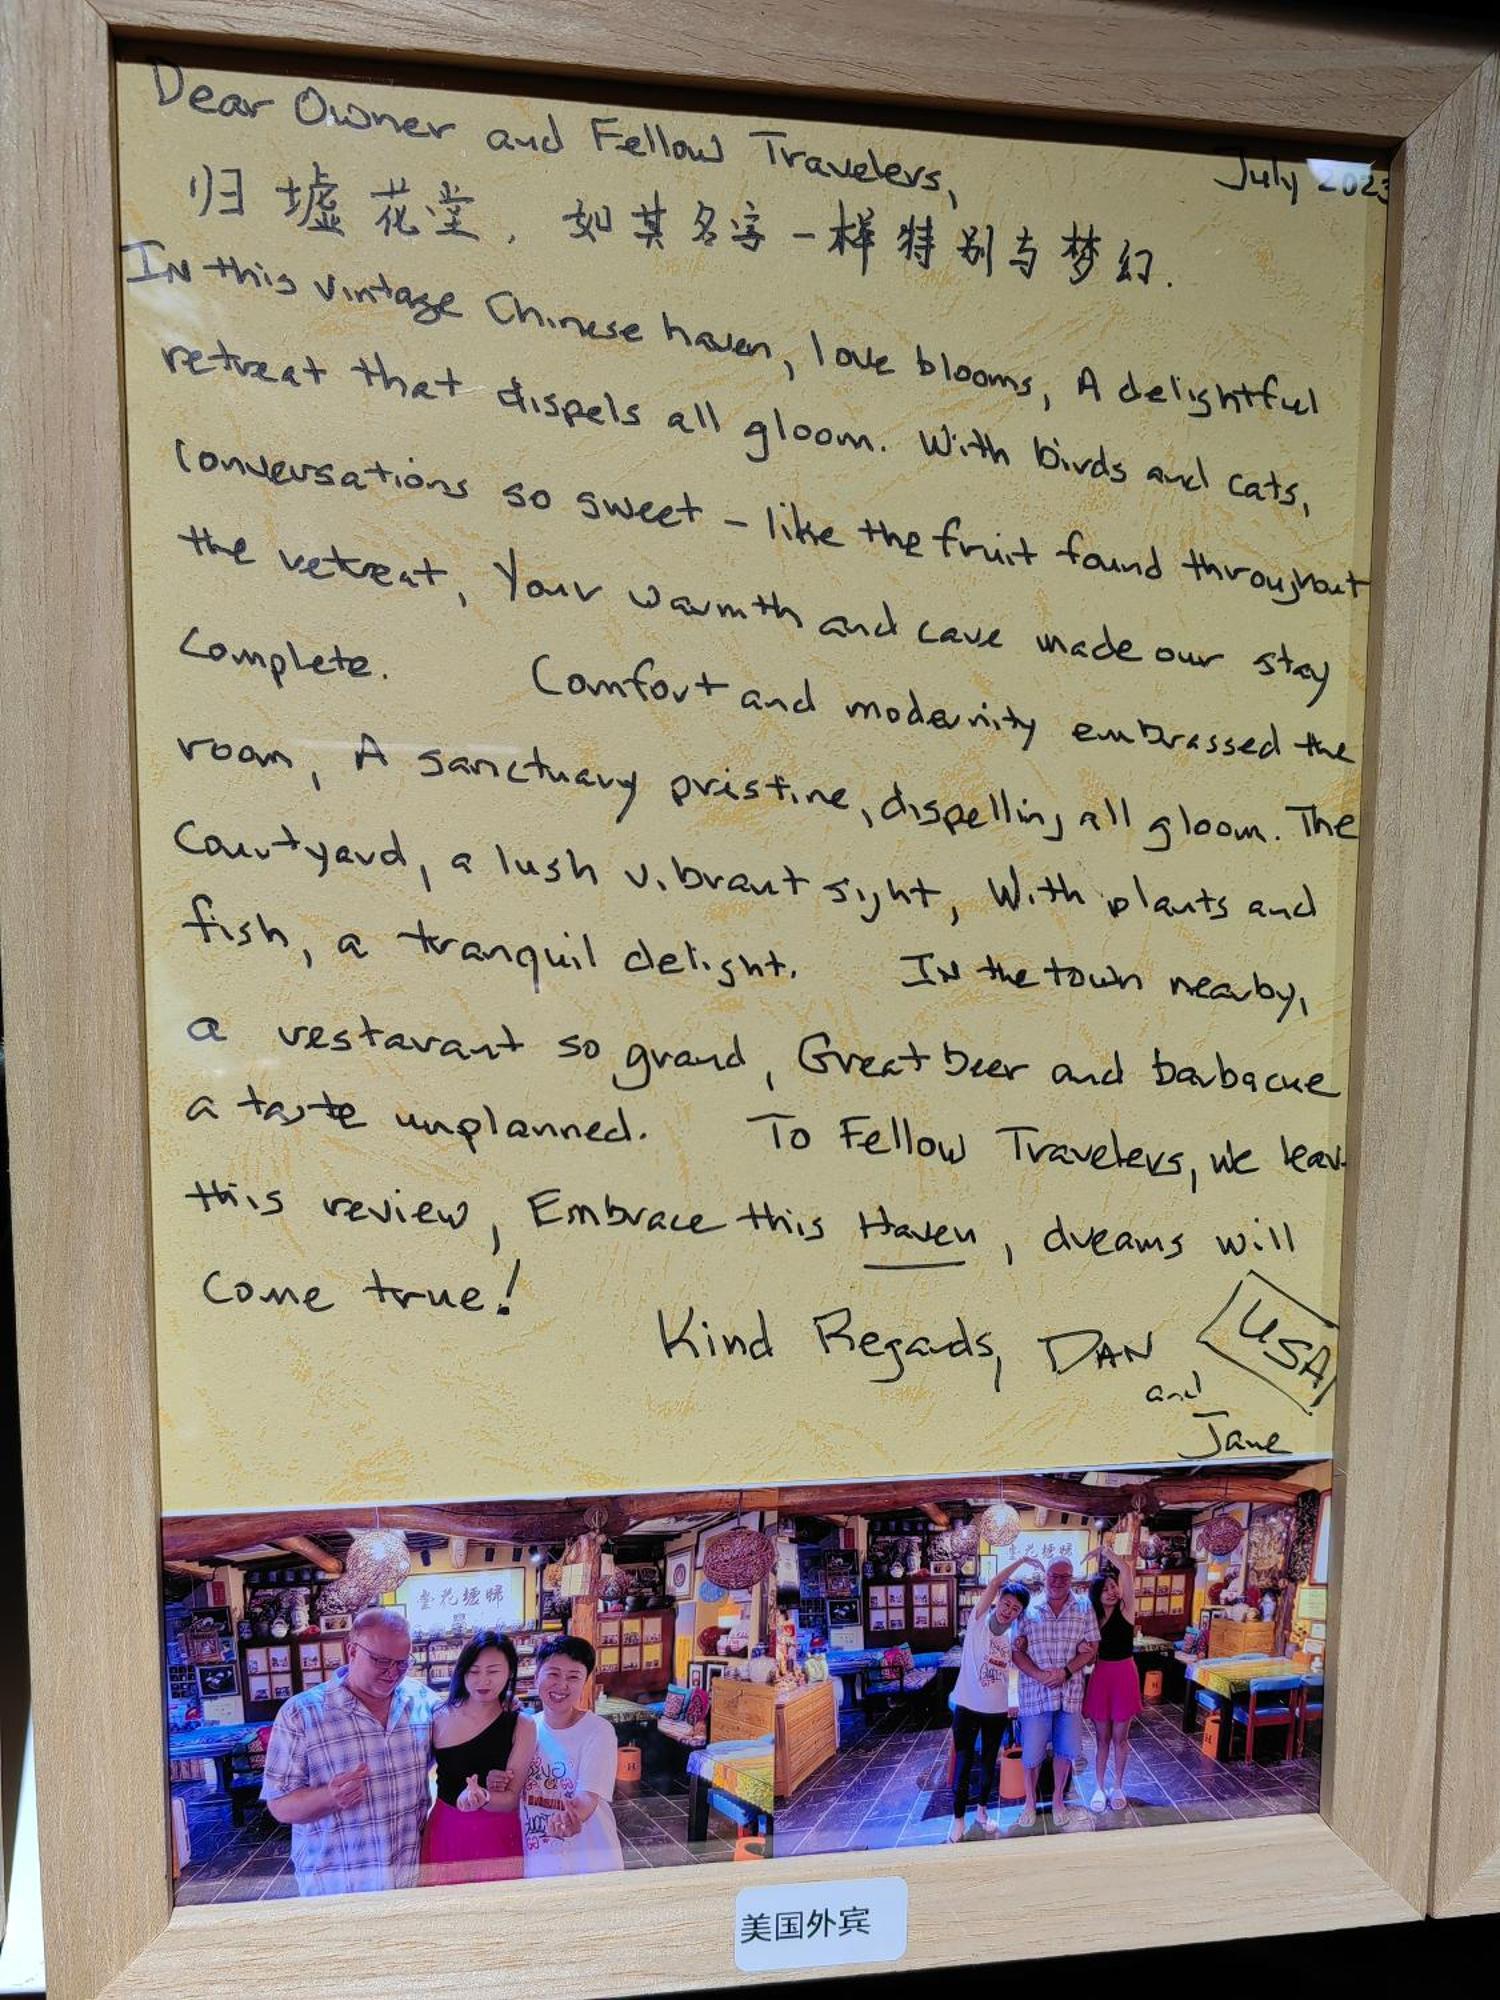 Dear Owner and Fellow Travelers,
July 2023
归墟花堂，如其名字一样特别与梦幻.
IN this vintage Chinese haven, love blooms, A delightful
retreat that dispels all gloom. With birds and cats,
Conversations so sweet - like the fruit found throughout
the retreat, Your warmth and care made our stay
Complete. Comfort and modernity embrassed the
room, A sanctuary pristine, dispelling all gloom. The
Courtyard, a lush vibrant sight, With plants and
fish, a tranquil delight. IN the town nearby,
a restarant so grand, Great beer and barbacue
a taste unplanned. To Fellow Travelers, we leav
this review, Embrace this Haven, dreams will
Come true!
Kind Regards, DAN
and
Jane
USA
堂花墟歸
堂花墟歸
美国外宾